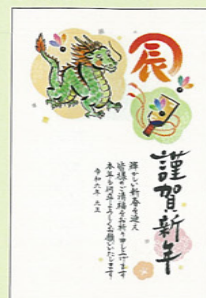 辰
謹賀新年
輝かしい新春を迎え
皆様のご清福をお祈り申し上げます
本年も何卒よろしくお願いいたします
令和六年 元旦